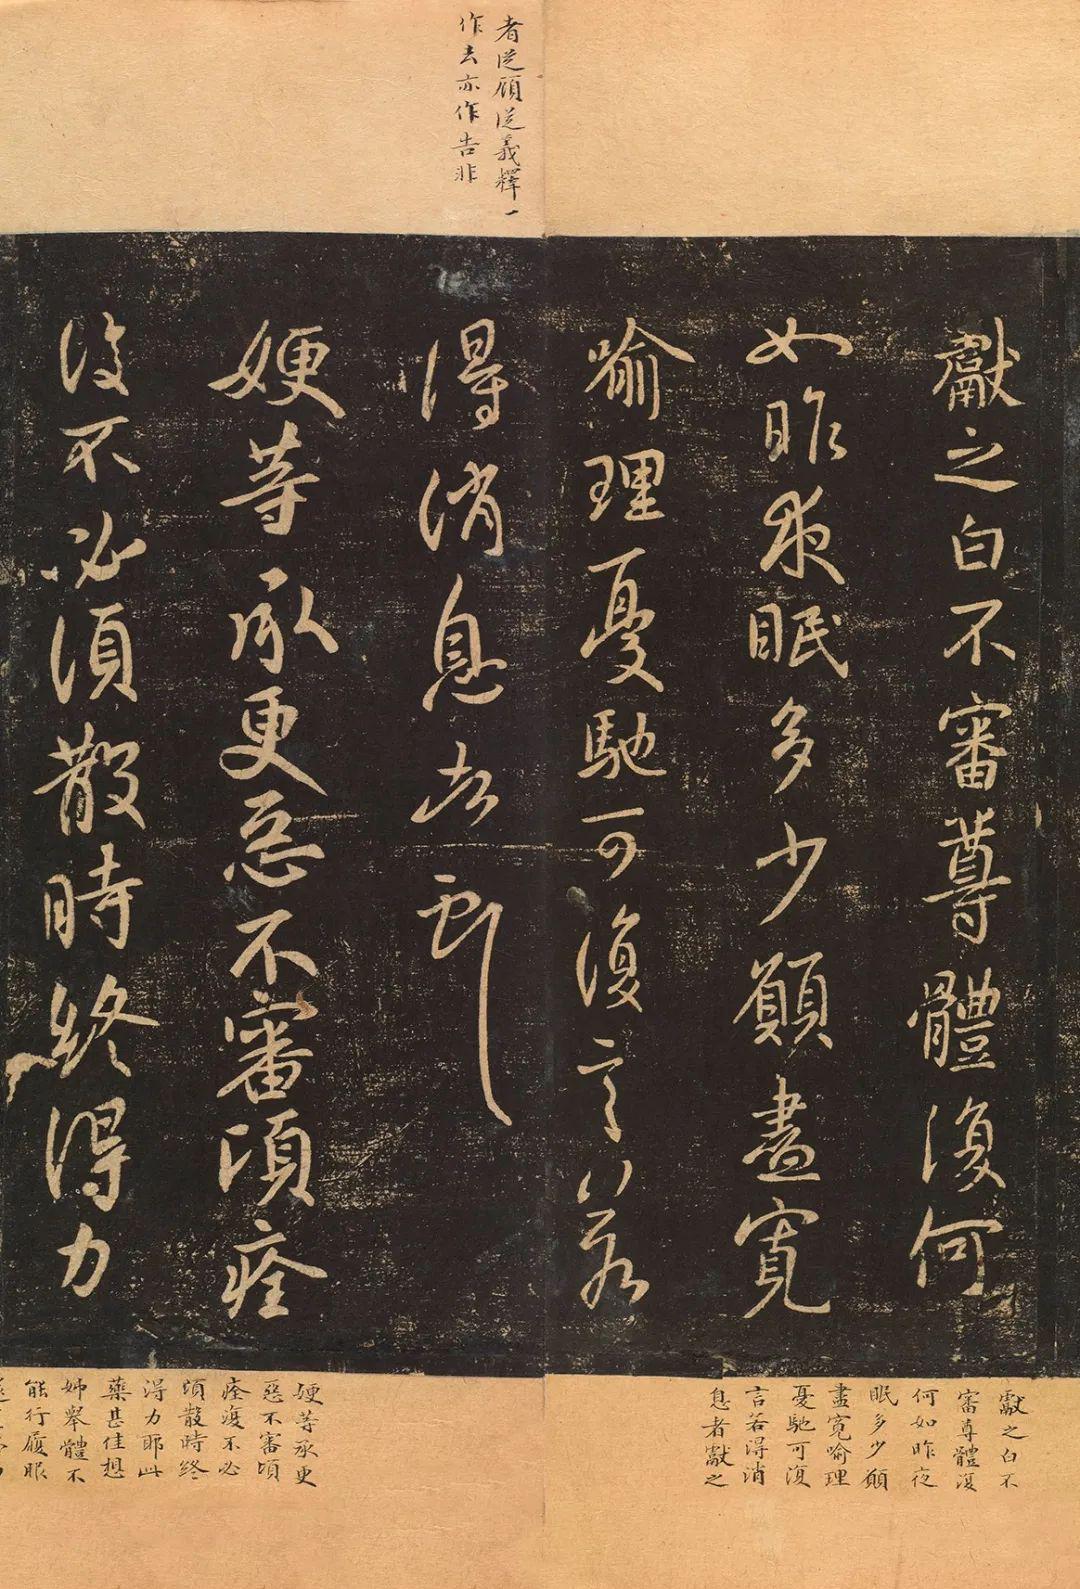 者從顧從義釋一
作去亦作告非
獻之白不審尊體復何
如昨夜眠多少願盡寬
喻理憂馳可復言若
得消息者
㛐等承更惡不審頃痊
復不必須散時終得力
獻之白不
審尊體復
何如昨夜
眠多少願
盡寬喻理
憂馳可復
言若得消
息者獻之
㛐等承更
惡不審頃
痊復不必
須散時終
得力耶此
藥甚佳想
姊舉體不
能行履眼